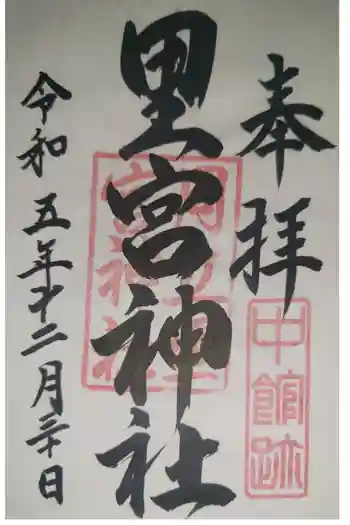 奉拝
中館跡
里宮神社
令和五年十二月三十日